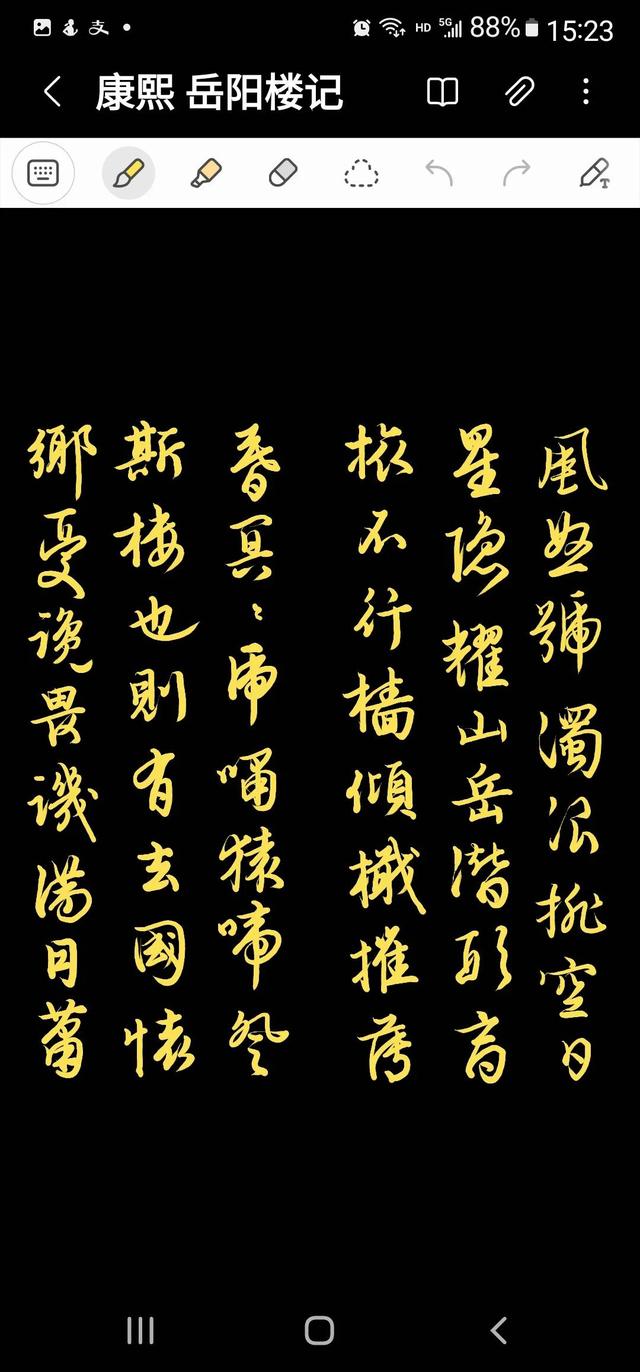 支 HD 5G 88% 15:23
康熙 岳阳楼记
風怒號濁浪排空日
星隐耀山岳潛形商
旅不行檣傾檝摧薄
暮冥〻虎嘯猿啼登
斯樓也則有去國懷
鄉憂讒畏譏滿目蕭